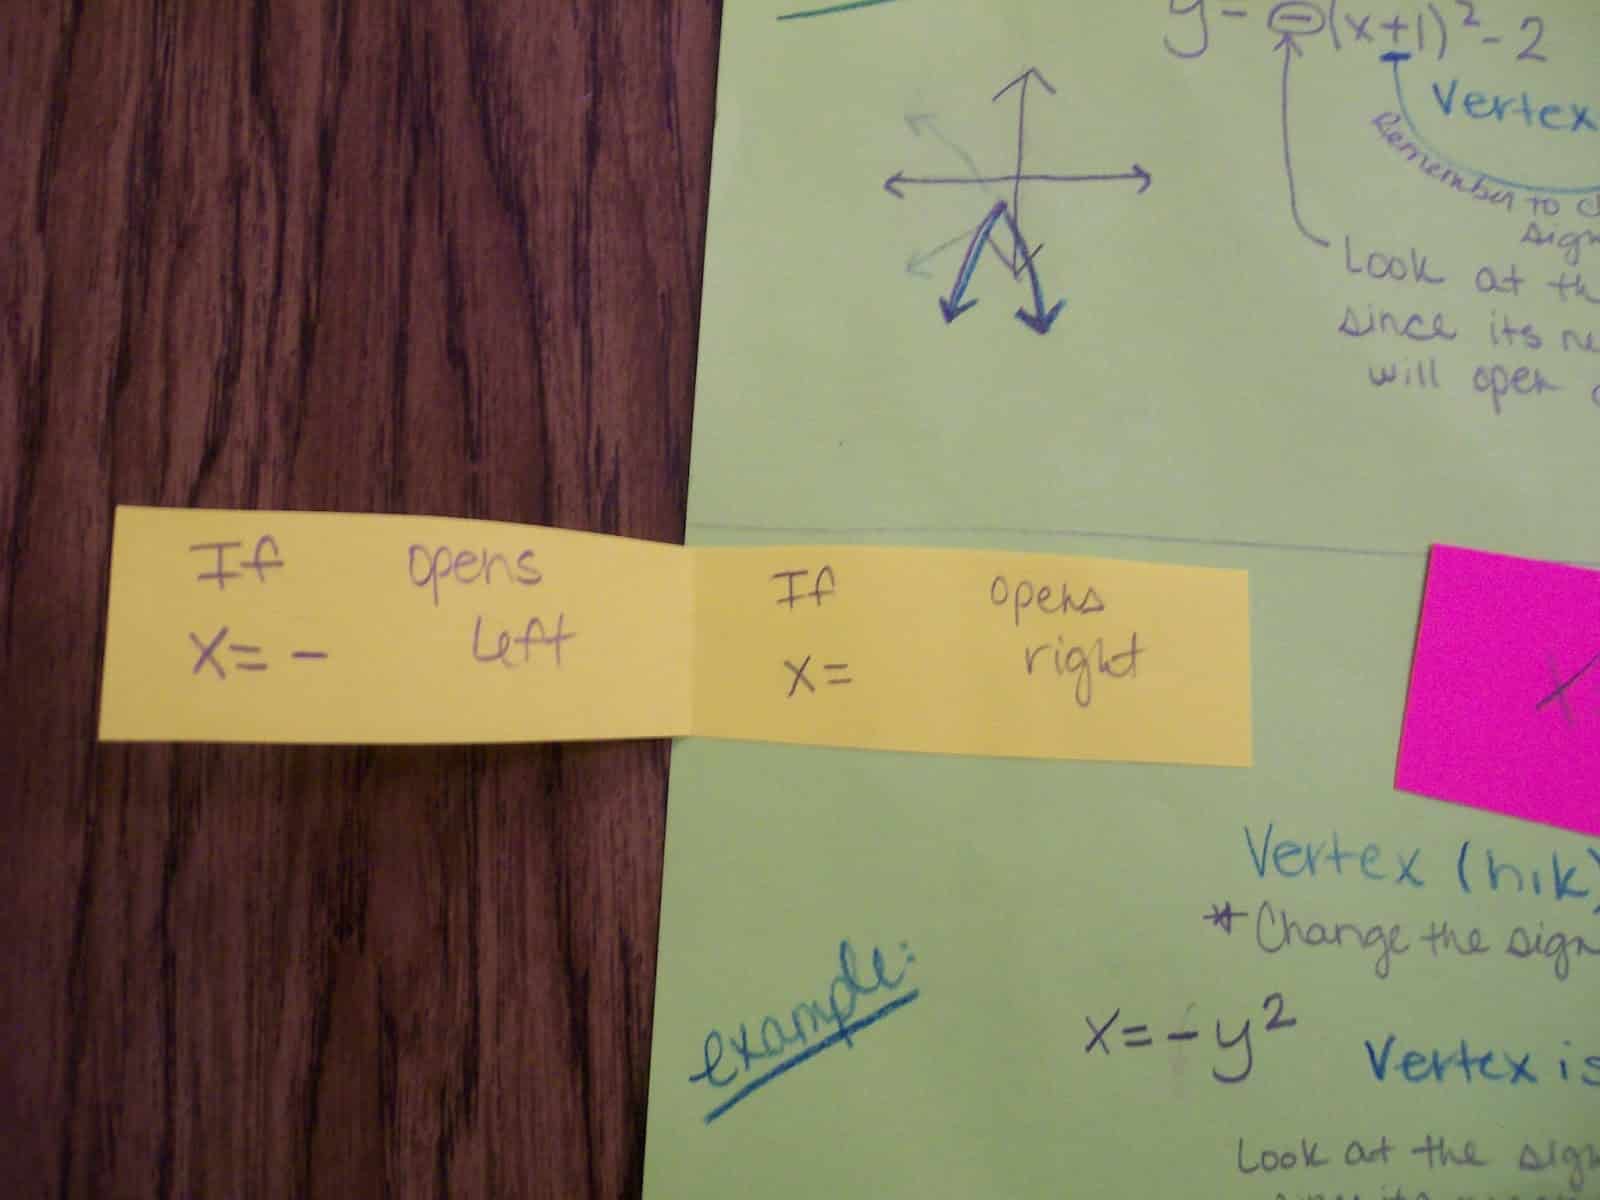 y = -(x+1)² - 2
Vertex
Remember to
sign
Look at
since its
will open
If opens
x = - left
If opens
x = right
x
Vertex (h,k)
*Change the sign
example:
x = -y²
Vertex is
Look at the sign